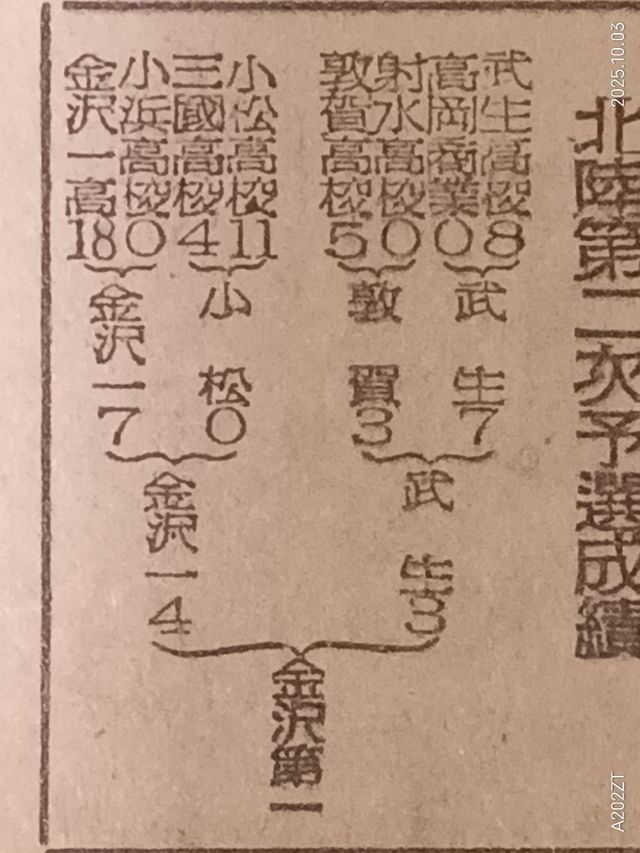 北陸第二次予選成績
武生高校8
高岡商業0
射水高校0
敦賀高校5
小松高校11
三國高校4
小浜高校0
金沢一高18
武生7
敦賀3
小松0
金沢一7
武生3
金沢一4
金沢第一
2025.10.03
A202ZT